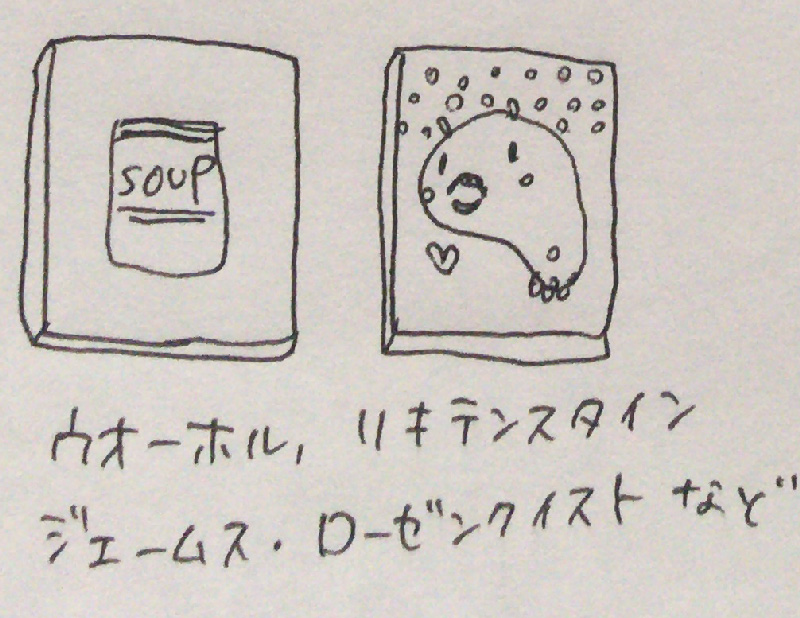 SOUP
ウオーホル, リキテンスタイン
ジェームス・ローゼンクイスト など